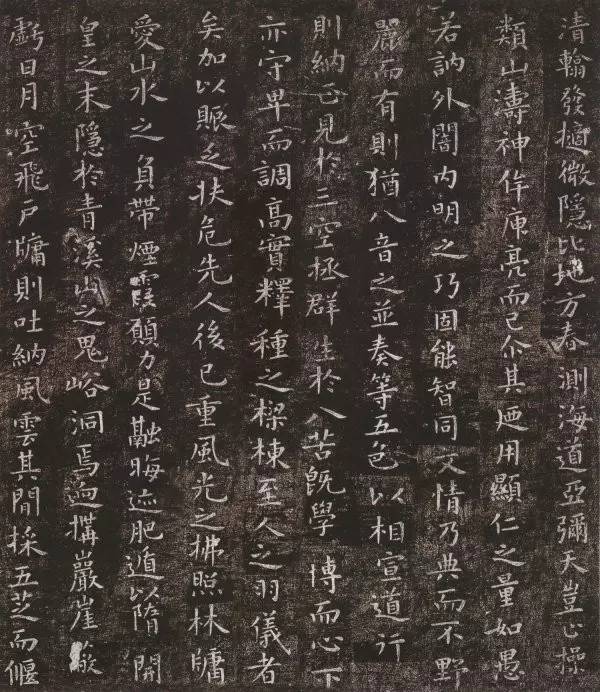 清翰發擿微隱比地方春測海道亞彌天豈止操
類山濤神侔庾亮而已介其廼用顯仁之量如愚
若訥外闇内明之巧固能智同 文情乃典而不野
麗而有則猶八音之並奏等五色以相宣道行
則納正見於三空極群生於八苦既學 博而心下
亦守卑而調高實釋種之樑棟至人之羽儀者
矣加以賑乏扶危先人後已重風光之拂照林牖
愛山水之負帶煙霞願力是融晦迹肥遁以隋開
皇之末隱於青溪山之鬼峪洞焉迥搆巖崖
虧日月空飛戶牖則吐納風雲其間採五芝而偃